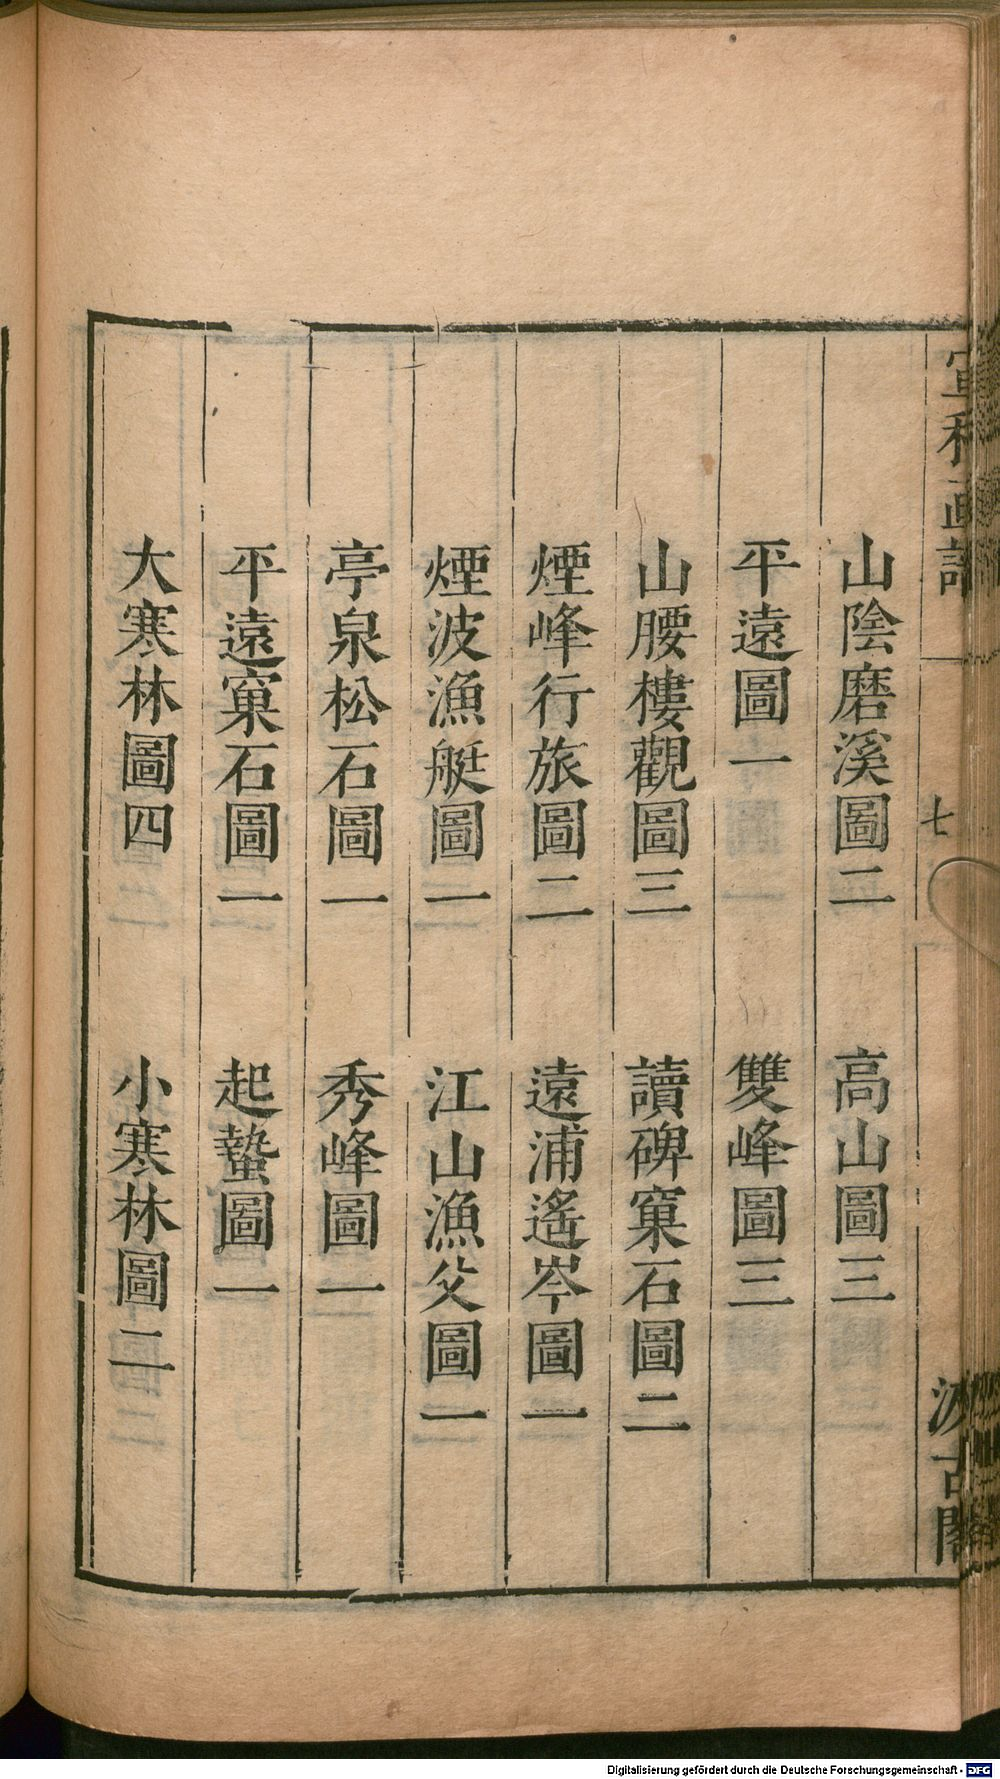 宣和畫譜 七 汲古閣
山陰磨溪圖二 高山圖三
平遠圖一 雙峰圖三
山腰樓觀圖三 讀碑窠石圖二
煙峰行旅圖二 遠浦遙岑圖一
煙波漁艇圖一 江山漁父圖一
亭泉松石圖一 秀峰圖一
平遠窠石圖一 起蟄圖一
大寒林圖四 小寒林圖二
Digitalisierung gefördert durch die Deutsche Forschungsgemeinschaft - DFG